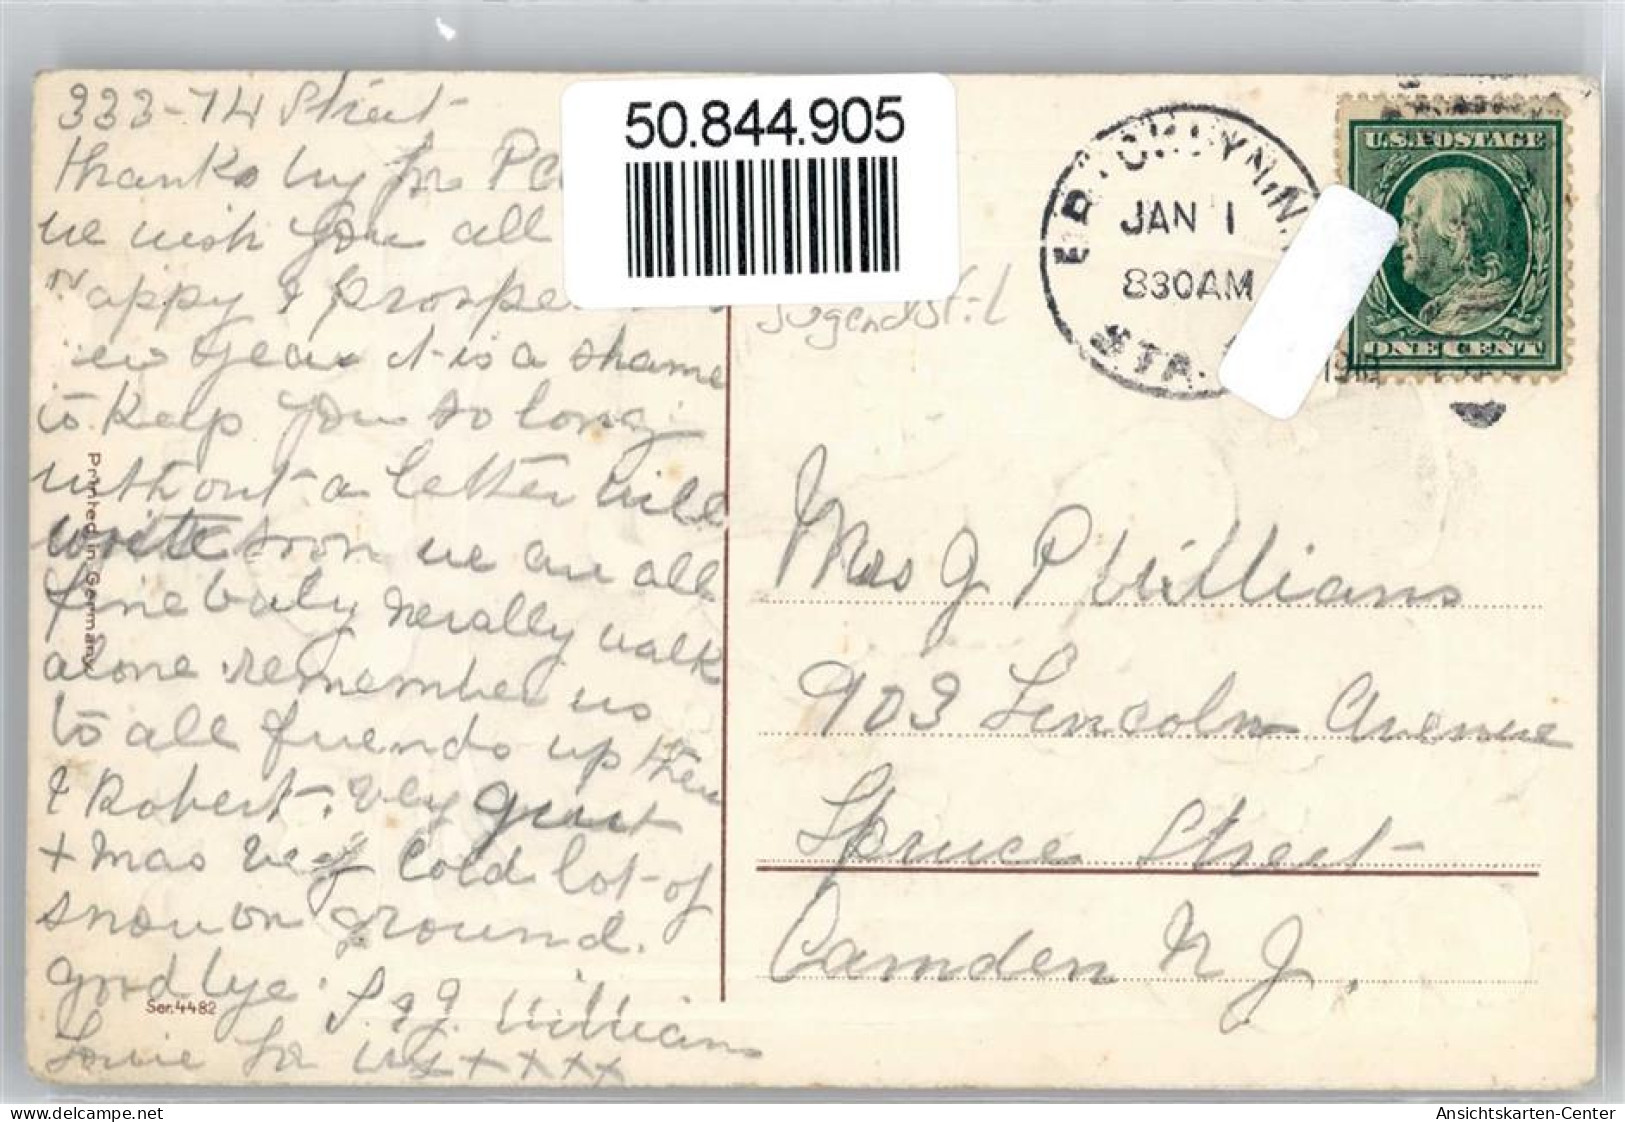 333-74 Street
thanks by for PC
we wish you all
appy & prospe
ew year it is a shame
to keep you so long
without a letter will
write soon we are all
fine baby nerally walk
alone remember us
to all friends up there
& Robert. very quiet
xmas very cold lot of
snow on ground.
good bye.
S. & J. Williams
for us xxxx
Printed in Germany
Ser. 4482
50.844.905
Jugendstil
BROOKLYN, N.
JAN 1
830AM
STA.
1910
U.S. POSTAGE
ONE CENT
Mrs J P Williams
903 Lincoln Avenue
Spruce Street
Camden N J.
delcampe.net
Ansichtskarten-Center